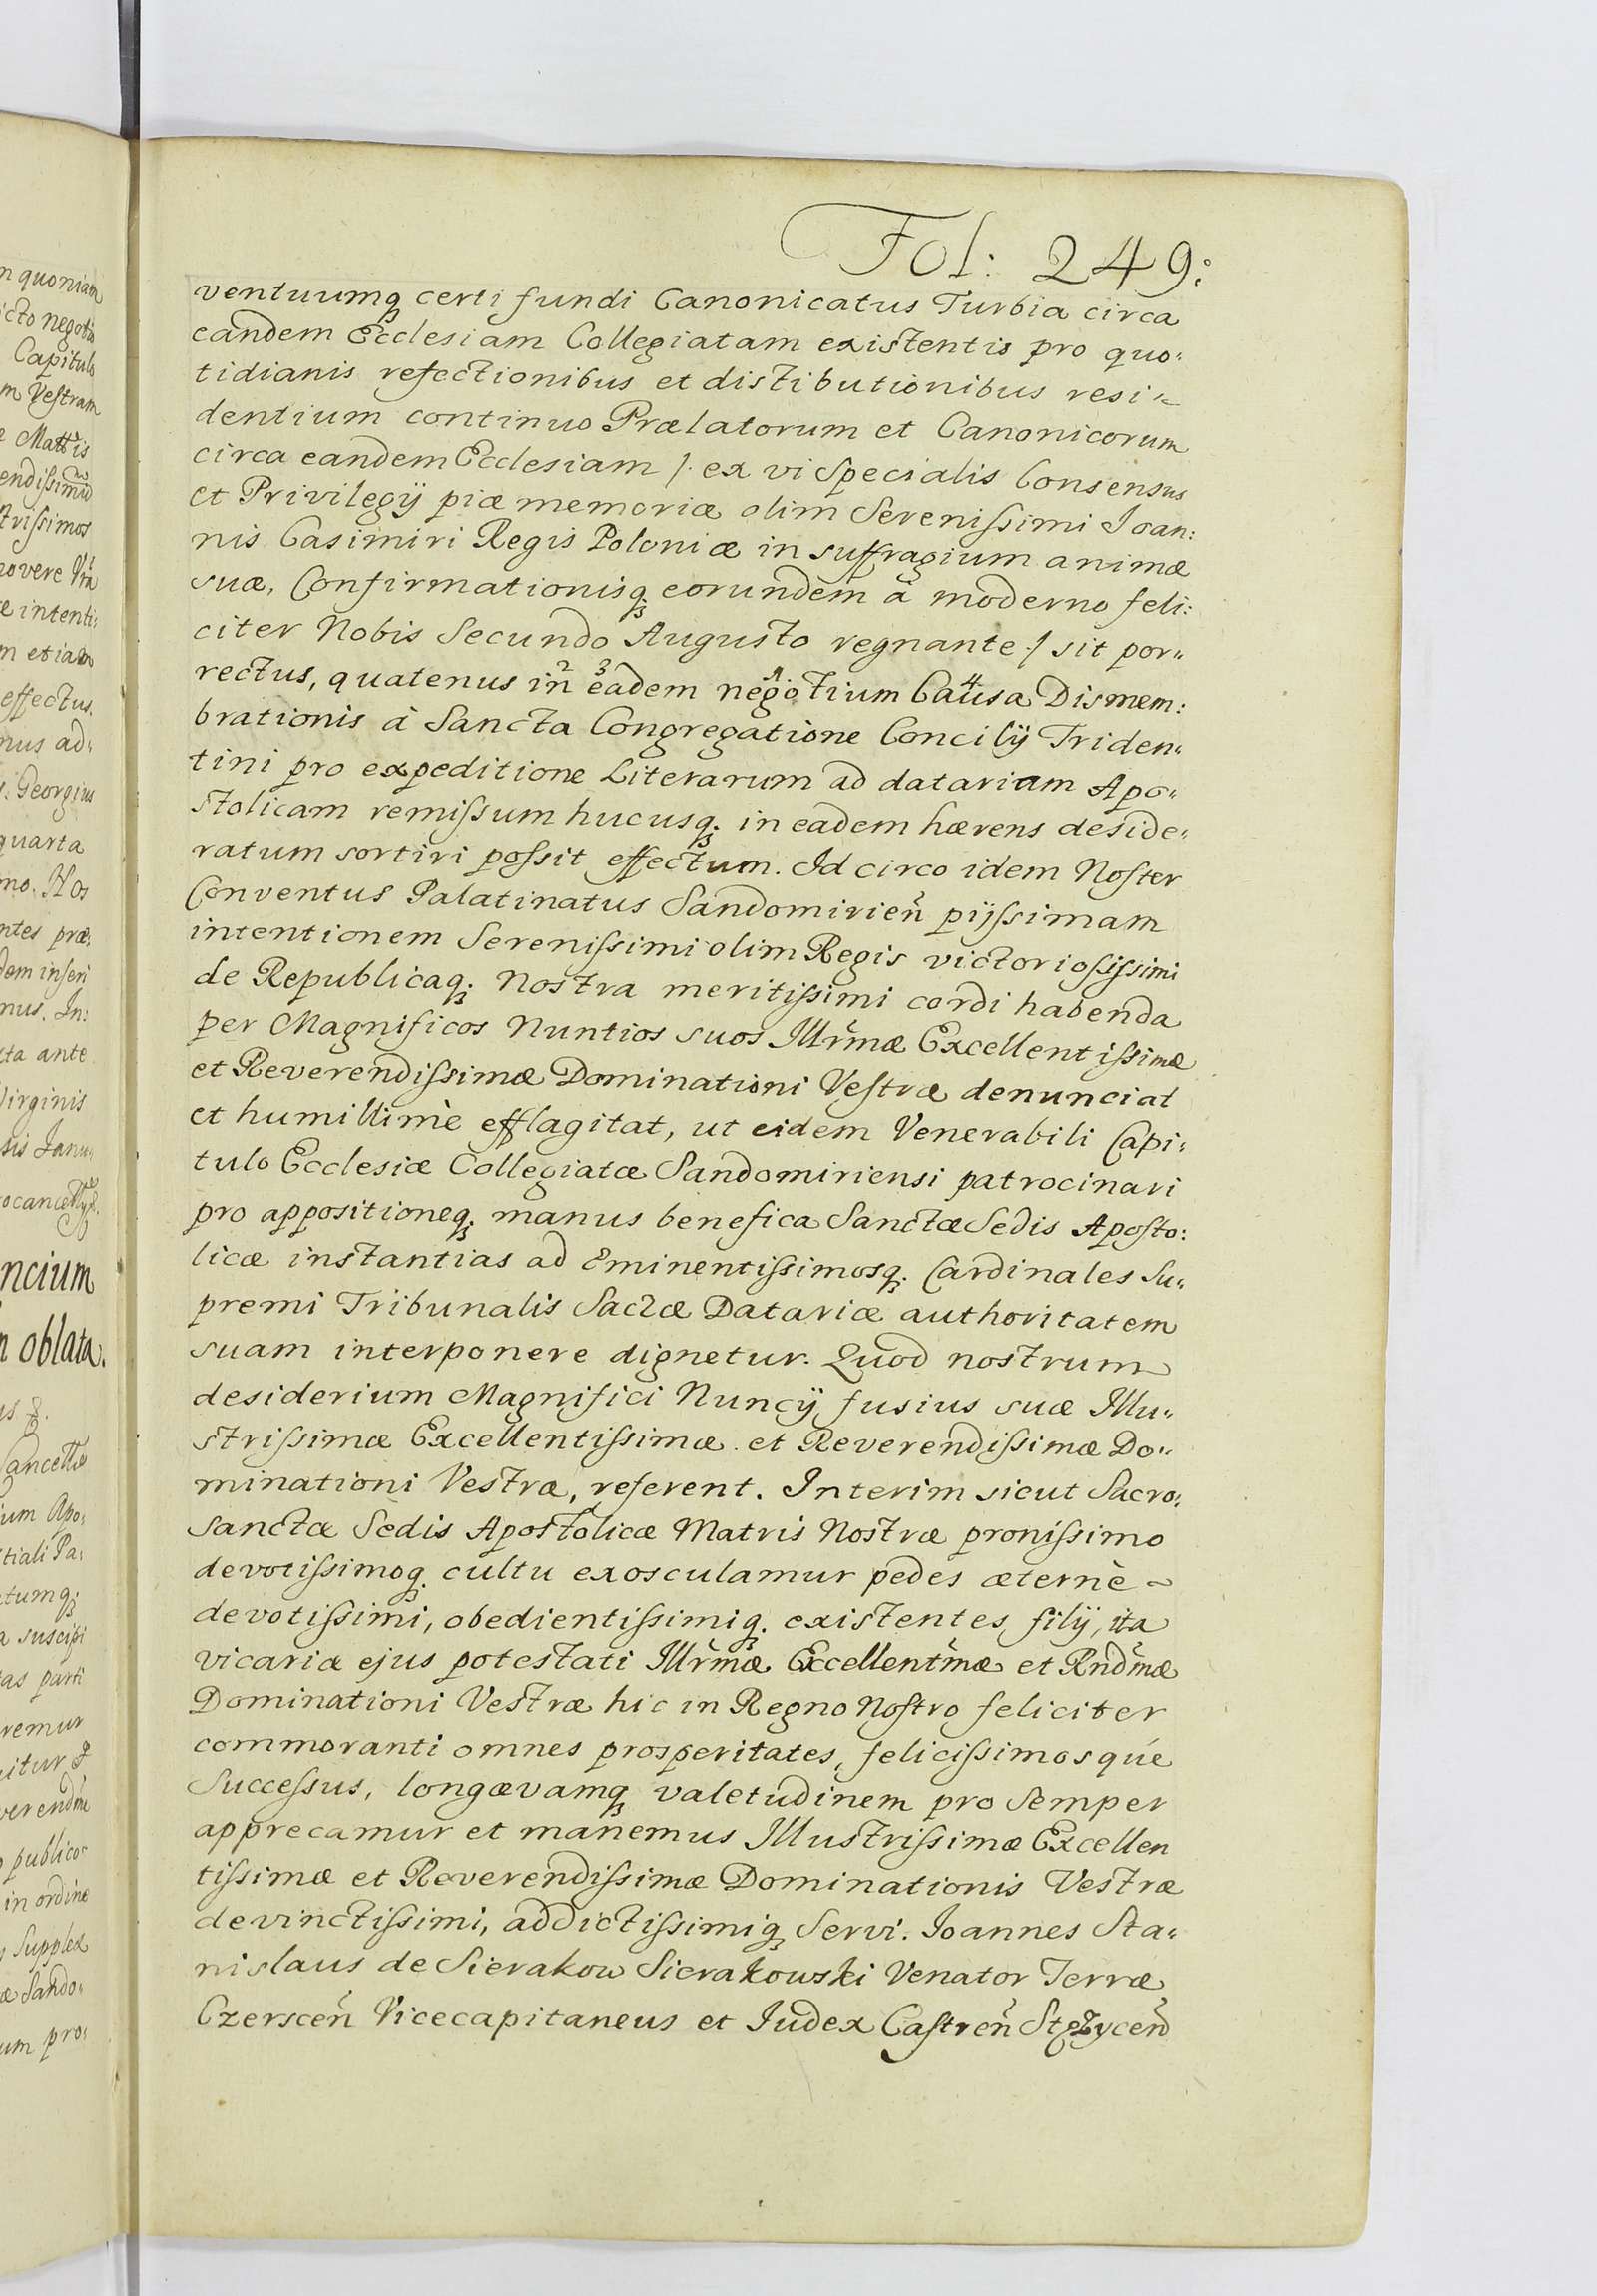 Fol: 249:
ventuumq; certi fundi Canonicatus Turbia circa
eandem Ecclesiam Collegiatam existentis pro quo:
tidianis refectionibus et distibutionibus resi:
dentium continuo Prælatorum et Canonicorum
circa eandem Ecclesiam /. ex vi Specialis Consensus
et Privilegij piæ memoriæ olim Serenissimi Joan:
nis Casimiri Regis Poloniæ in suffragium animæ
suæ, Confirmationisq; eorundem à moderno feli:
citer Nobis Secundo Augusto regnante ./ sit por:
rectus, quatenus in² eadem³ negotium¹ Causa⁴ Dismem:
brationis à Sancta Congregatione Concilij Triden:
tini pro expeditione Literarum ad datariam Apo:
stolicam remissum hucusq; in eadem hærens deside:
ratum sortiri possit effectum. Id circo idem Noster
Conventus Palatinatus Sandomirien̄ pijssimam
intentionem Serenissimi olim Regis victoriosissimi
de Republicaq; Nostra meritissimi cordi habenda
per Magnificos Nuntios suos Illr̃mæ Excellentissimæ
et Reverendissimæ Dominationi Vestræ denunciat
et humillimè efflagitat, ut eidem Venerabili Capi:
tulo Ecclesiæ Collegiatæ Sandomiriensi patrocinari
pro appositioneq; manus benefica Sanctæ Sedis Aposto:
licæ instantias ad Eminentissimosq; Cardinales Su:
premi Tribunalis Sacræ Datariæ authoritatem
suam interponere dignetur. Quod nostrum
desiderium Magnifici Nuncij fusius suæ Illu:
strissimæ Excellentissimæ et Reverendissimæ Do:
minationi Vestræ, referent. Interim sicut Sacro:
Sanctæ Sedis Apostolicæ Matris Nostræ pronissimo
devotissimoq; cultu exosculamur pedes æternè ~
devotissimi, obedientissimiq; existentes filij, ita
vicariæ ejus potestati Illr̃mæ Excellentm̃æ et Rndm̃æ
Dominationi Vestræ hic in Regno Nostro feliciter
commoranti omnes prosperitates, felicissimosque
Successus, longævamq; valetudinem pro Semper
apprecamur et manemus Illustrissimæ Excellen
tissimæ et Reverendissimæ Dominationis Vestræ
devinctissimi, addictissimiq; Servi. Joannes Sta:
nislaus de Sierakow Sierakowski Venator Terræ
Czerscen̄ Vicecapitaneus et Judex Castren̄ Stężycen̄